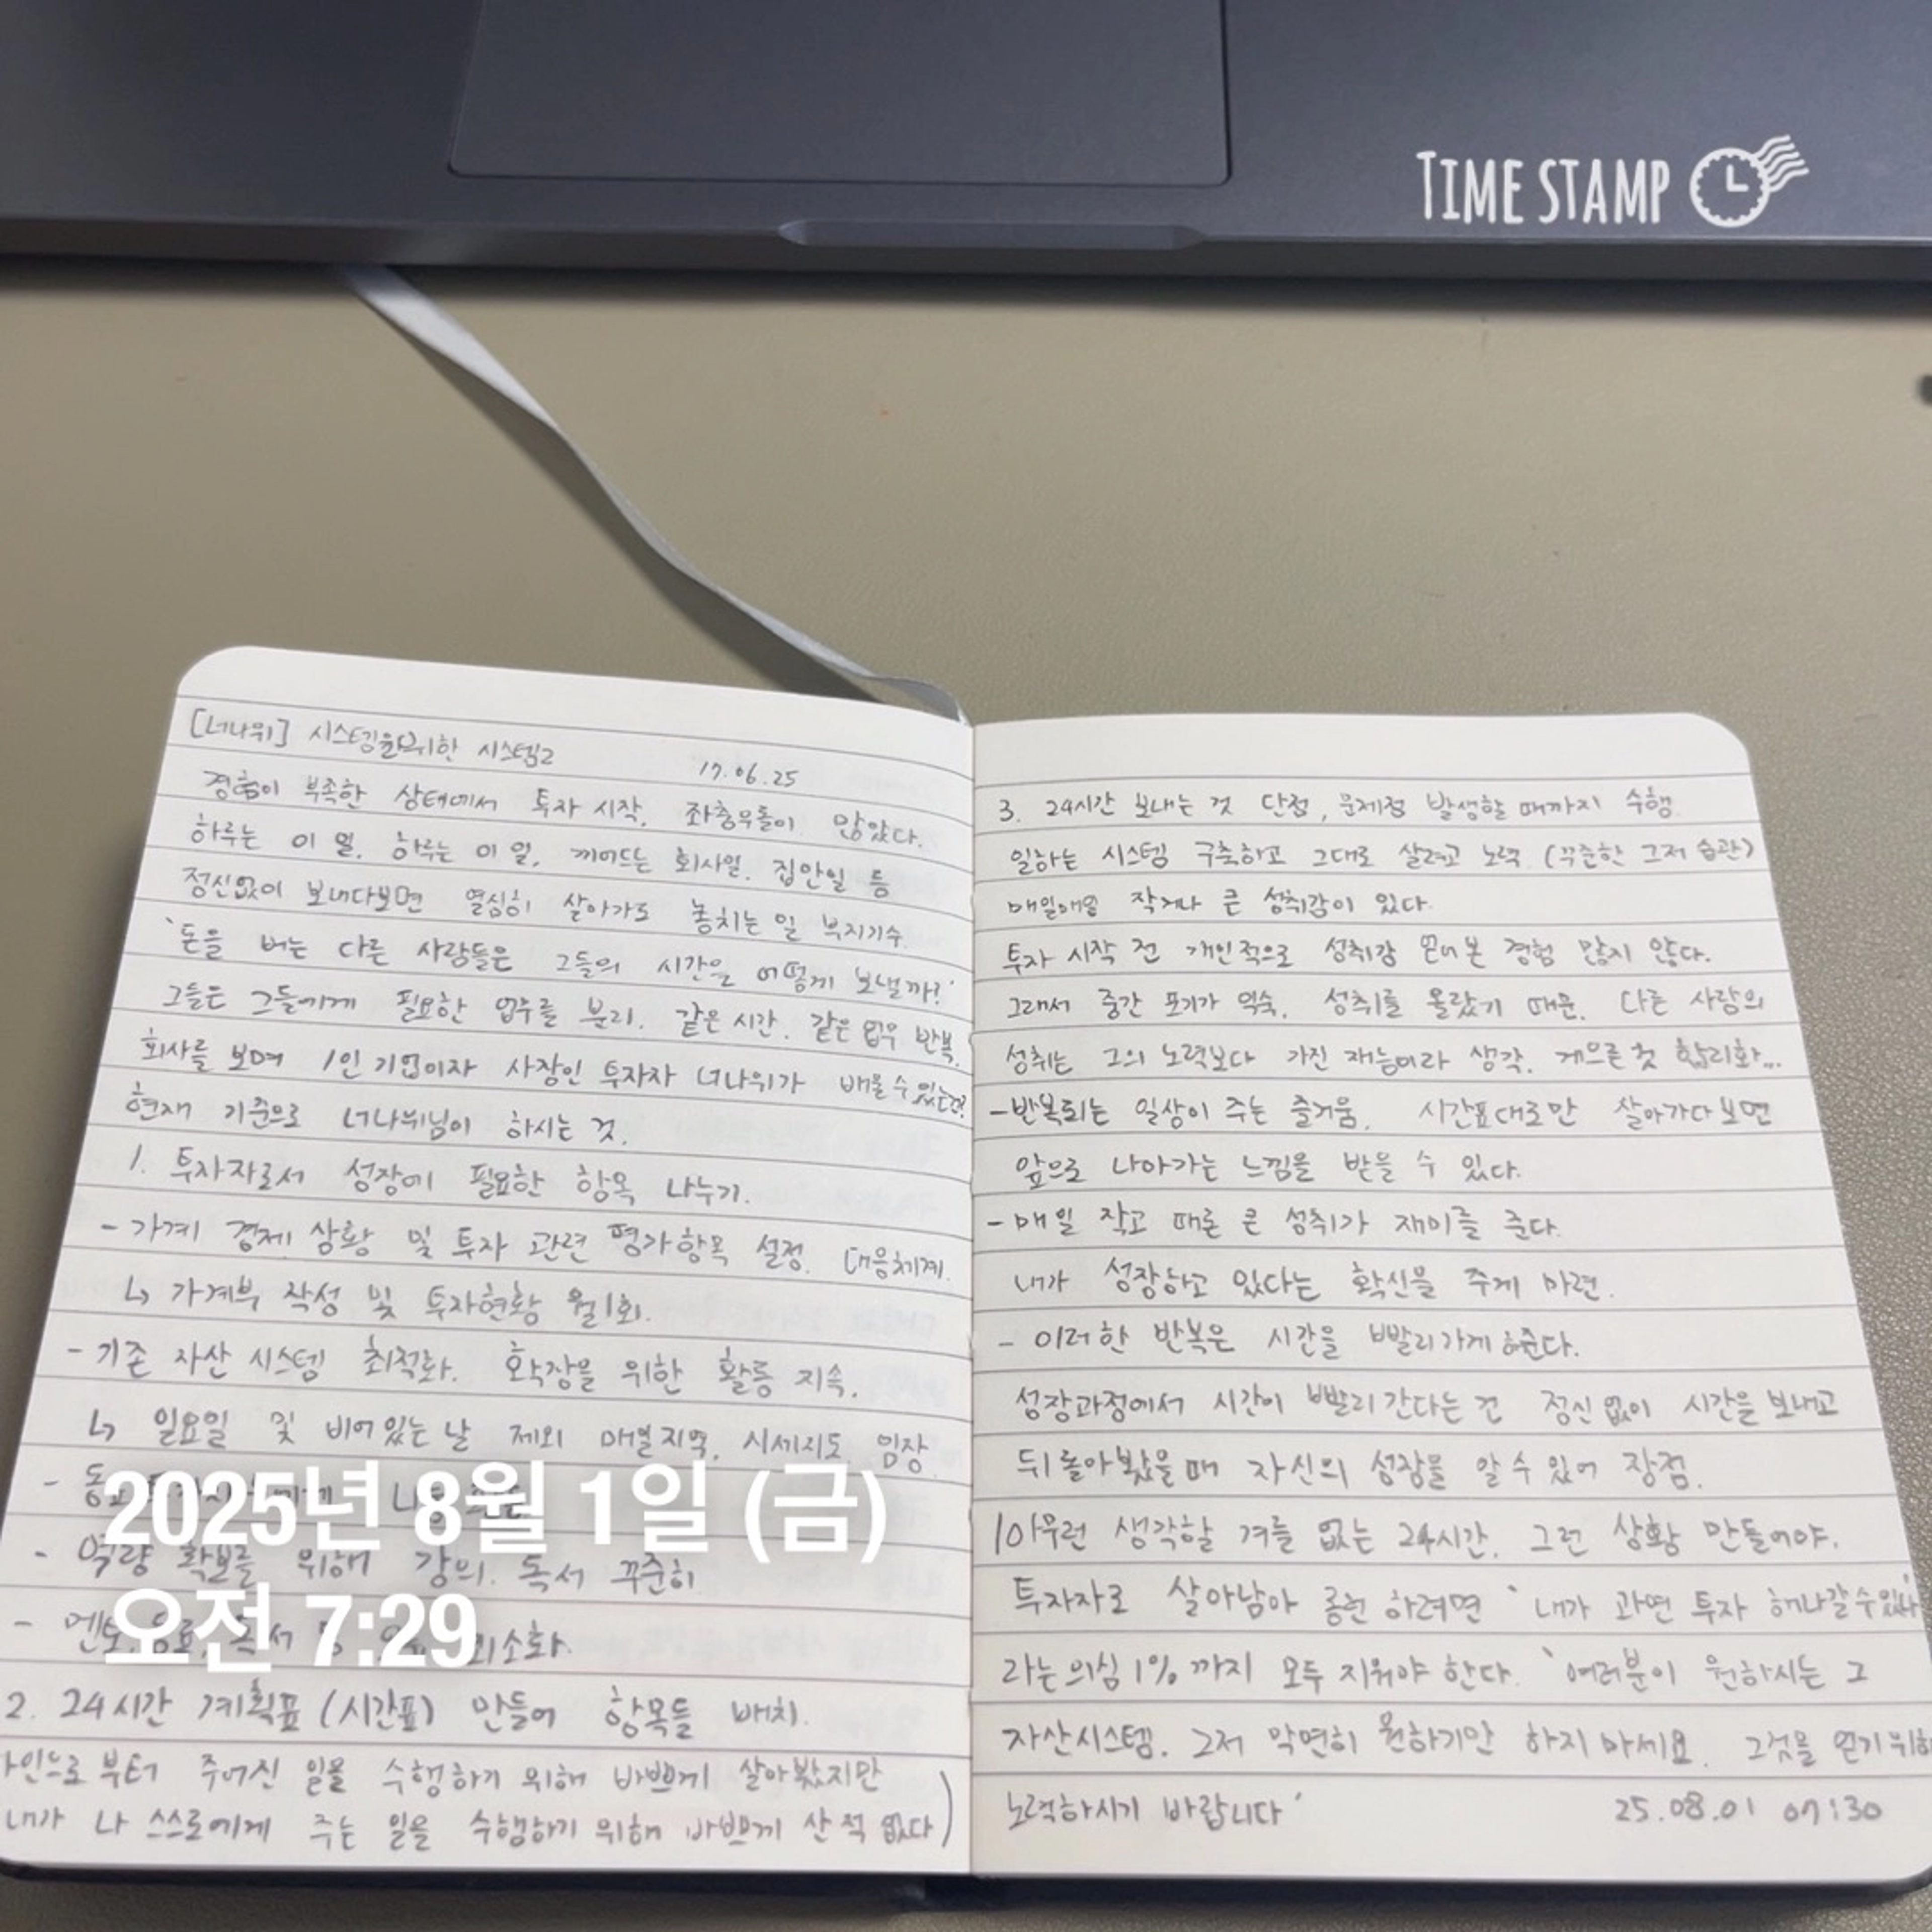 TIME STAMP
[너나위] 시스템을 위한 시스템2
17.06.25
경험이 부족한 상태에서 투자 시작. 좌충우돌이 많았다.
하루는 이 일. 하루는 이 일. 끼어드는 회사일. 집안일 등
정신없이 보내다보면 열심히 살아가도 놓치는 일 부지기수.
'돈을 버는 다른 사람들은 그들의 시간을 어떻게 보낼까?'
그들은 그들에게 필요한 업무를 분리. 같은 시간. 같은 업무 반복.
회사를 보며 1인 기업이자 사장인 투자자 너나위가 배울 수 있는건?
현재 기준으로 너나위님이 하시는 것.
1. 투자자로서 성장에 필요한 항목 나누기.
- 가계 경제 상황 및 투자 관련 평가항목 설정. 대응체계.
↳ 가계부 작성 및 투자현황 월1회.
- 기존 자산 시스템 최적화. 확장을 위한 활동 지속.
↳ 일요일 및 비어있는 날 제외 매일 지역. 시세지도 임장.
2025년 8월 1일 (금)
- 역량 확보를 위해 강의. 독서 꾸준히
오전 7:29
- 멘토, 최소화.
2. 24시간 계획표 (시간표) 만들어 항목들 배치.
타인으로 부터 주어진 일을 수행하기 위해 바쁘게 살아봤지만
내가 나 스스로에게 주는 일을 수행하기 위해 바쁘게 산 적 없다)
3. 24시간 보내는 것 단점, 문제점 발생할 때까지 수행
일하는 시스템 구축하고 그대로 살려고 노력 (꾸준한 그저 습관)
매일매일 작거나 큰 성취감이 있다.
투자 시작 전 개인적으로 성취감 얻어 본 경험 많지 않다.
그래서 중간 포기가 익숙. 성취를 몰랐기 때문. 다른 사람의
성취는 그의 노력보다 가진 재능이라 생각. 게으른 첫 합리화...
- 반복되는 일상이 주는 즐거움. 시간표대로만 살아가다보면
앞으로 나아가는 느낌을 받을 수 있다.
- 매일 작고 때론 큰 성취가 재미를 준다.
내가 성장하고 있다는 확신을 주게 마련.
- 이러한 반복은 시간을 빨리가게 해준다.
성장과정에서 시간이 빨리 간다는 건 정신 없이 시간을 보내고
뒤 돌아 봤을 때 자신의 성장을 알 수 있어 장점.
아무런 생각할 겨를 없는 24시간. 그런 상황 만들어야.
투자자로 살아남아 롱런 하려면 '내가 과연 투자 해나갈 수 있나'
라는 의심 1% 까지 모두 지워야 한다. '여러분이 원하시는 그
자산시스템. 그저 막연히 원하기만 하지 마세요. 그것을 얻기 위해
노력하시기 바랍니다'
25.08.01 07:30